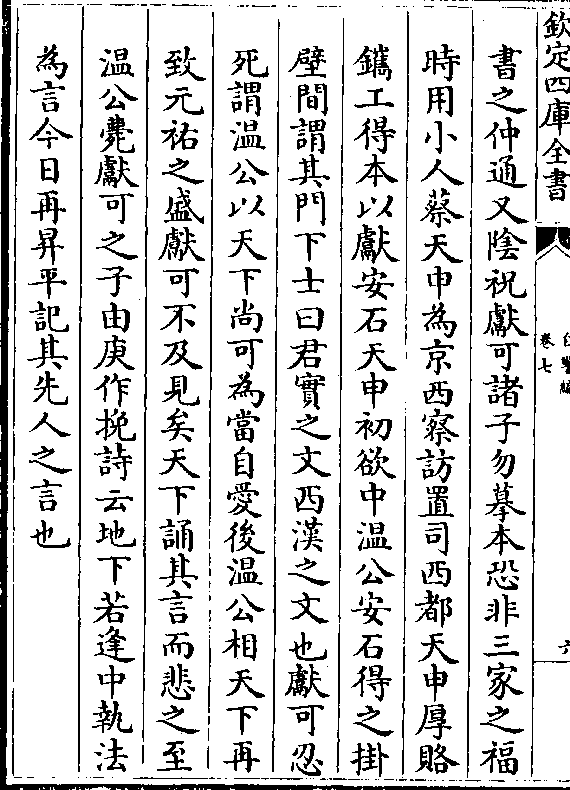 欽定四庫全書
卷七
六
書之仲通又陰祝獻可諸子勿摹本恐非三家之福
時用小人蔡天申為京西察訪置司西都天申厚賂
鐫工得本以獻安石天申初欲中温公安石得之掛
壁間謂其門下士曰君實之文西漢之文也獻可忍
死謂温公以天下尚可為當自愛後温公相天下再
致元祐之盛獻可不及見矣天下誦其言而悲之至
温公薨獻可之子由庚作挽詩云地下若逢中執法
為言今日再昇平記其先人之言也